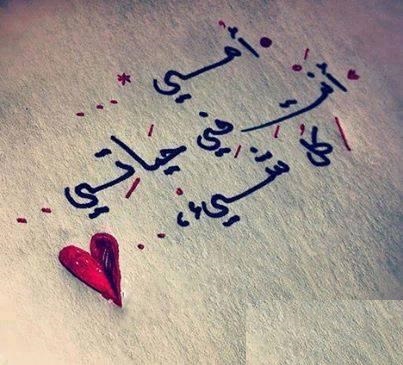 أنتِ أمي
كل شيء في حياتي